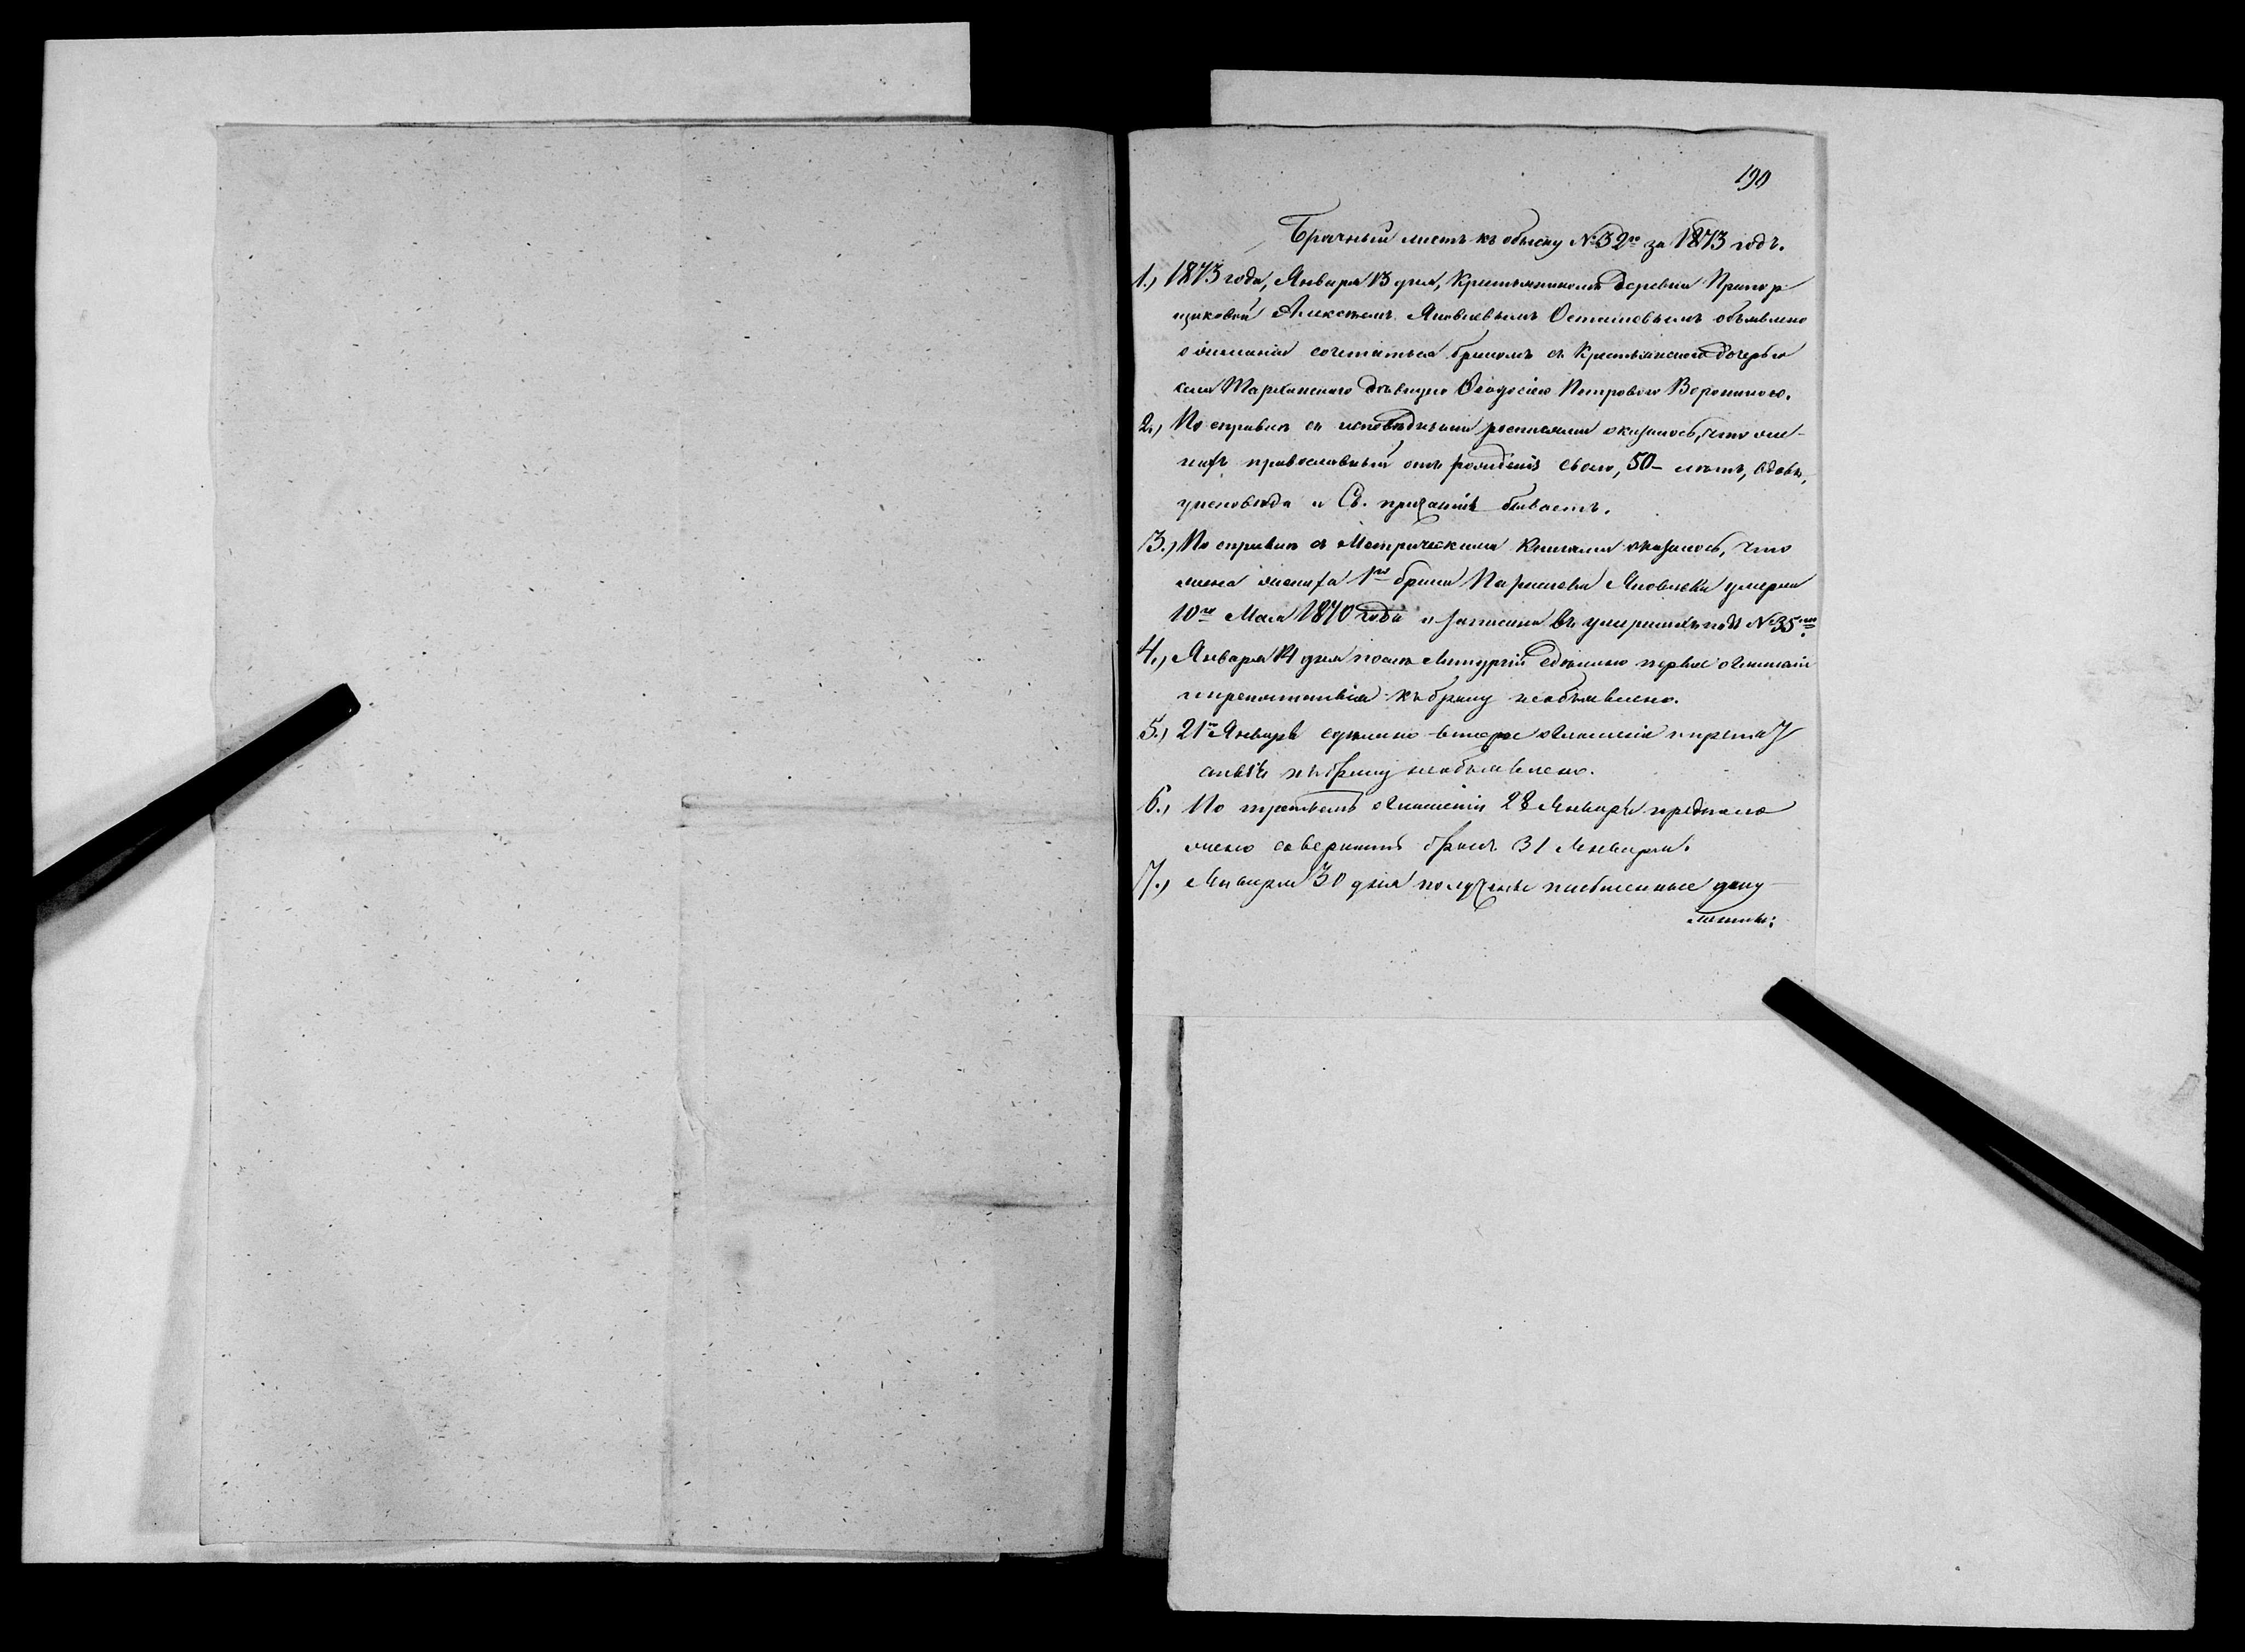 190
Брачный листъ къ обыску №32го за 1873 годъ.
1.) 1873 года, Января 13 дня, Крестьяниномъ деревни Прапор
щиковой Алексѣемъ Яковлевымъ Осташовымъ объявлено
о желаніи сочетаться бракомъ съ Крестьянскою дочерью
села Тарханскаго дѣвицею Ѳеодосіею Петровою Ворониною.
2.) По справкѣ съ исповѣдными росписями оказалось, что же-
нихъ православный отъ рожденія своего, 50- лѣтъ, вдовъ,
уисповѣда и Св. причастія бываетъ.
3.) По справкѣ съ Метрическими Книгами оказалось, что
жена жениха 1го брака Яковлева умерла
10го Мая 1870 года и записана въ умершихъ подъ №35мъ.
4.) Января 14 дня послѣ Литургіи сдѣлано первое оглашеніе
и препятствія къ браку необъявлено.
5.) 21го Января сдѣлано второе оглашеніе и препят
ствія къ браку необъявлено.
6.) По третьемъ оглашеніи 28 Января предполо
жено совершить бракъ 31 Января.
7.) Января 30 дня получены письменные доку-
менты: